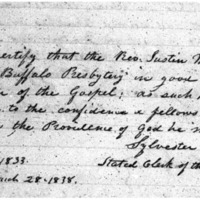 ertify that the Rev. Justin
Buffalo Presbytery in good
of the Gospel; as such
to the confidence & fellows
the Providence of God he
Sylvester
1833. Stated Clerk of th
arch 28 - 1838.